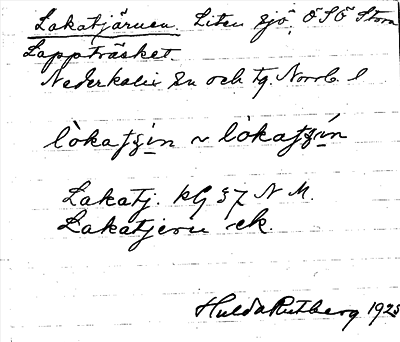 Lakatjärnen. Liten sjö, ÖSÖ Stora
Lappträsket.
Nederkalix sn och tg. Norrb. l
lòkatʂin ~ lòkatʂín
Lakatj. kG 37 N M.
Lakatjern ek.
Hulda Rutberg 1925